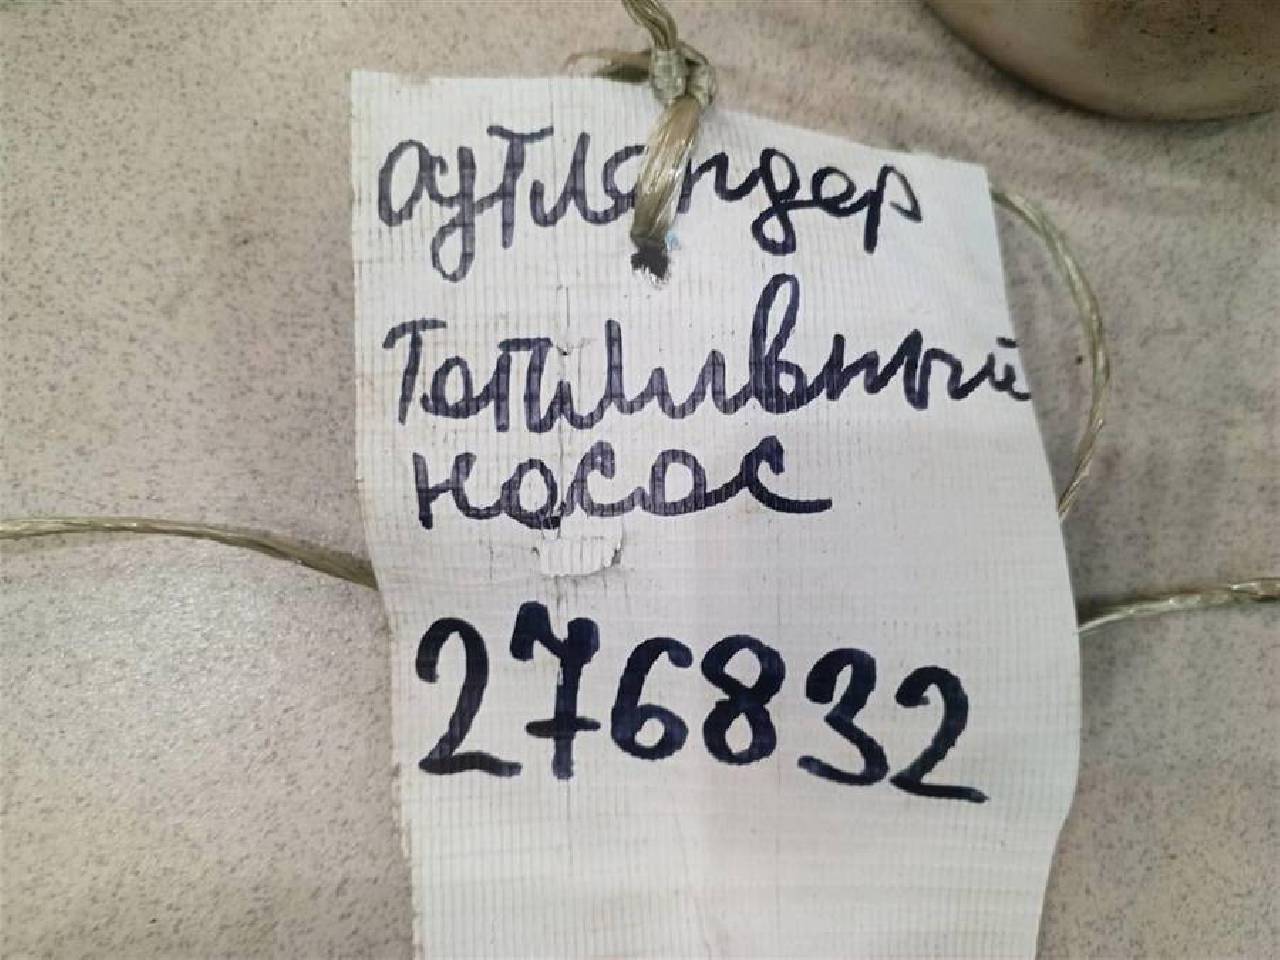 Аутландер
Топливный
насос
276832